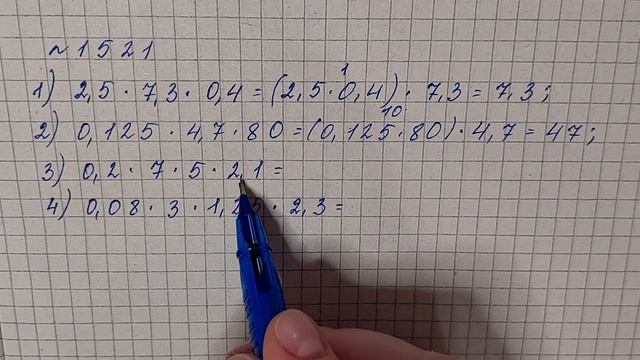 № 1521
1) 2,5 · 7,3 · 0,4 = (2,5 · 0,4) · 7,3 = 7,3 ;
1
2) 0,125 · 4,7 · 80 = (0,125 · 80) · 4,7 = 47 ;
10
3) 0,2 · 7 · 5 · 2,1 =
4) 0,08 · 3 · 1,25 · 2,3 =